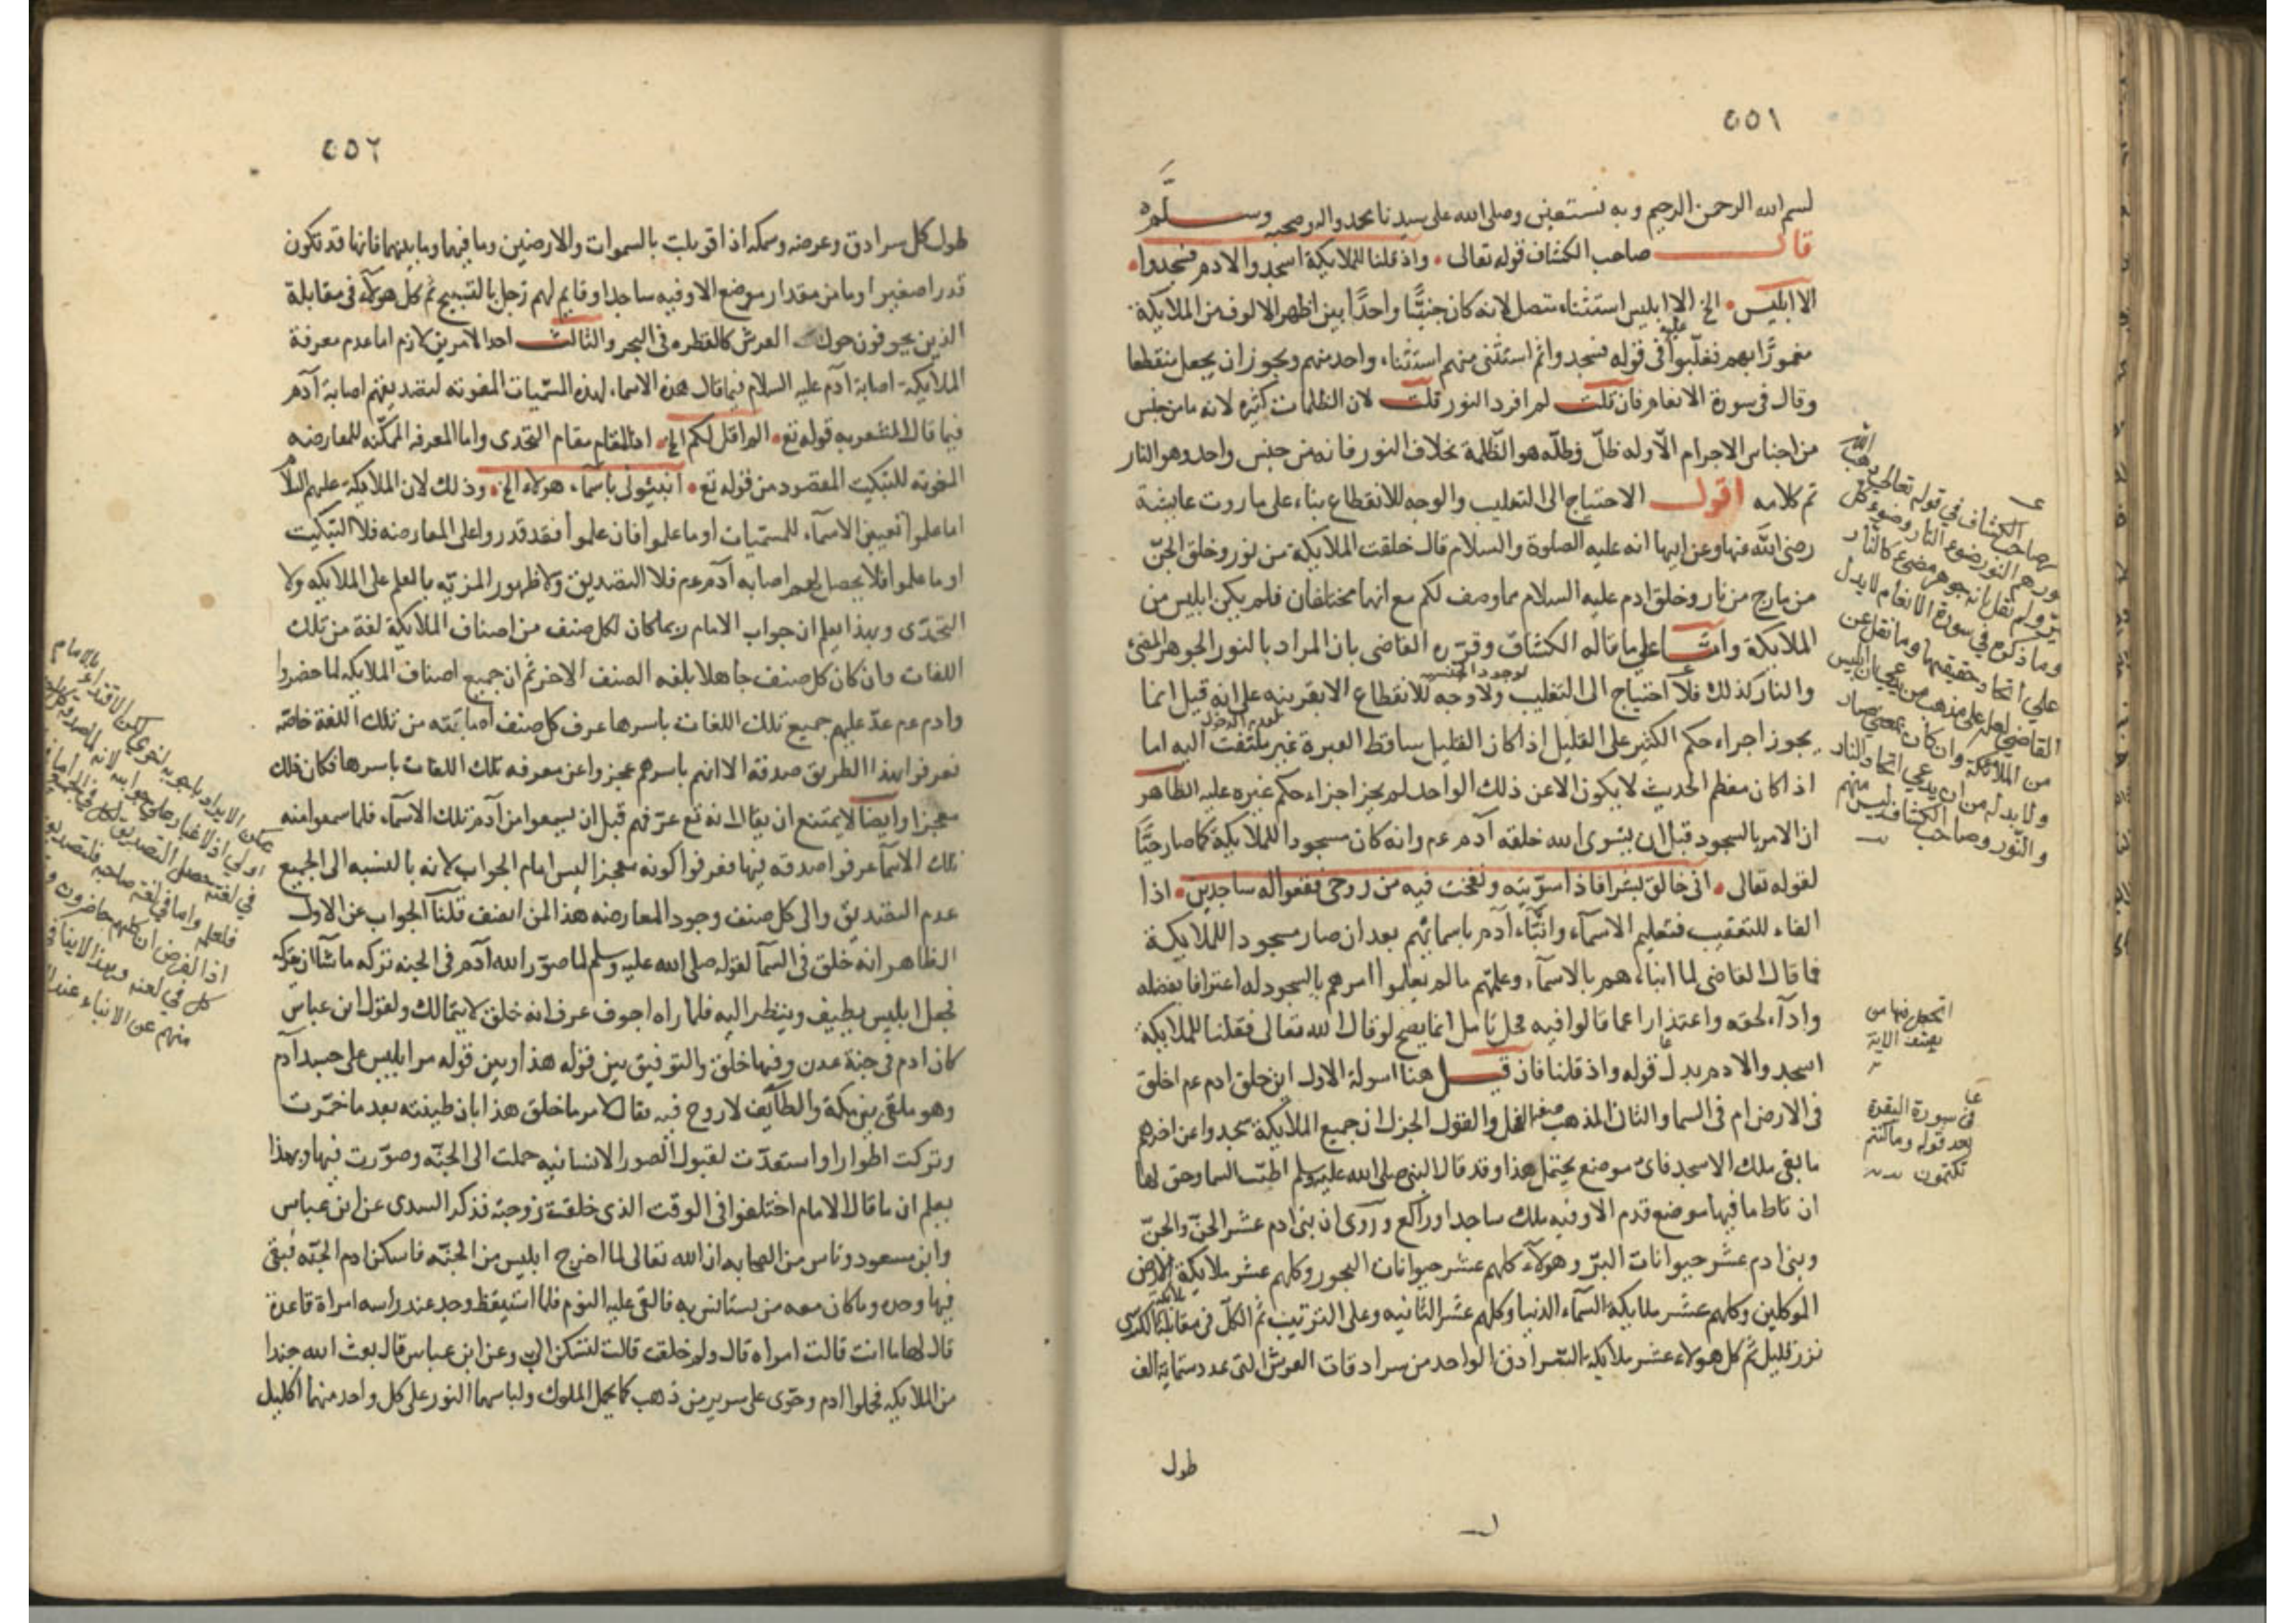 ٥٥١
بسم الله الرحمن الرحيم وبه نستعين وصلى الله على سيدنا محمد واله وصحبه وسلم
قال صاحب الكشاف قوله تعالى واذ قلنا للملايكة اسجدوا لادم فسجدوا
الا ابليس الخ الا ابليس استثناء متصل لانه كان جنيًّا واحدًا بين اظهر الالوف من الملايكة
مغمورًا بهم فغلّبوا عليه فى قوله فسجدوا ثم استثنى منهم استثناء واحد منهم ويجوز ان يجعل منقطعا
وقال فى سورة الانعام فان قلت لم افرد النور قلت لان الظلمات كثيره لانه ما من جنس
من اجناس الاجرام الّا وله ظلّ وظلّه هو الظّلمة بخلاف النور فانه من جنس واحد وهو النار
تم كلامه اقول الاحتياج الى التغليب والوجه للانقطاع بناء على ما روت عايشة
رضى الله عنها وعن ابيها انه عليه الصلوة والسلام قال خلقت الملايكة من نور وخلق الجنّ
من مارج من نار وخلق ادم عليه السلام مما وصف لكم مع انهما مختلفان فلم يكن ابليس من
الملايكة وامّا على ما قاله الكشاف وقرّره القاضى بان المراد بالنور الجوهر المضئ
والنار كذلك فلا احتياج الى التغليب ولا وجه للانقطاع الا بقرينه على انه قيل انما
يجوز اجراء حكم الكثير على القليل اذا كان القليل ساقط العبرة غير ملتفت اليه اما
اذا كان معظم الحديث لا يكون الا عن ذلك الواحد لم يجز اجراء حكم غيره عليه الظاهر
ان الامر بالسجود قبل ان يسّوى الله خلقه آدم عم وانه كان مسجودا للملايكة كما صار حيًّا
لقوله تعالى انى خالق بشرا فاذا سوّيته ونفخت فيه من روحى فقعوا له ساجدين اذا
الفاء للتعقيب فتعليم الاسمآء وانبآء آدم باسمائهم بعد ان صار مسجودا للملايكة
فما قال القاضى لما انباءهم بالاسمآء وعلّمهم ما لم يعلموا امرهم بالسجود له اعترافا بفضله
وادآء لحقه واعتذارا عما قالوا فيه محل تامل انما يصح لو قال الله تعالى فقلنا للملايكة
اسجدوا لادم بدل قوله واذ قلنا فان قيل هنا اسولة الاول اين خلق ادم عم اخلق
فى الارض ام فى السما والثانى المذهب الفحل والقول الجزل ان جميع الملايكة سجدوا عن اخرهم
ما بقى ملك الا سجد فاىّ موضع يحتمل هذا وقد قال النبى صلى الله عليه وسلم اطّت السما وحق لها
ان تاط ما فيها موضع قدم الا وفيه ملك ساجد او راكع وروى ان بنى ادم عشر الجنّ والجنّ
وبنى ادم عشر حيوانات البرّ وهولآء كلهم عشر حيوانات البحور وكلهم عشر ملايكة الارض
الموكلين وكلهم عشر ملايكة السمآء الدنيا وكلهم عشر الثانيه وعلى الترتيب ثم الكلّ فى مقابلة الكرسى
نزر قليل ثم كل هولاء عشر ملايكة السّرادق الواحد من سرادقات العرش التى عدد ستماية الف
طول
صاحب الكشاف فى قوله تعالى ذهب الله
بنورهم النور ضوء النار وضوء كل
نيّر ولم نقل انه جوهر مضئ كالنار
وما ذكره فى سورة الانعام لا يدل
على اتحاد حقيقتهما وما نقل عن
القاضى لعله على مذهب من يدعى ان ابليس
من الملائكة وان كان بمعنى صار
ولا بد له من ان يدعى اتحاد النار
والنّور وصاحب الكشاف ليس منهم
اتجعل فيها من
يفسد الاية
فى سورة البقرة
بعد قوله وما كنتم
تكتمون
٥٥٢
طول كل سرادق وعرضه وسمكه اذا قوبلت بالسموات والارضين وما فيهما وما بينهما فانها قد تكون
قدرا صغيرا وما من مقدار موضع الا وفيه ساجد او قايم لهم زجل بالتسبيح ثم كل هولآء فى مقابلة
الذين يحوفون حول العرش كالقطره فى البحر والثالث احد الامرين لازم اما عدم معرفة
الملايكة اصابة آدم عليه السلام فيما قال هذه الاسماء لهذه المسّميات المفوته لتصديقهم اصابة آدم
فيما قال المشعر به قوله تع الم اقل لكم الخ اذ المقام مقام التحدى واما المعرفه الممكّنه للمعارضه
المفوته للتبكيت المقصود من قوله تع انبئونى باسمآء هولاء الخ وذلك لان الملايكة عليهم السلام
اما علموا تعيين الاسمآء للمسّميات او ما علموا فان علموا فقد قدروا على المعارضه فلا التبكيت
او ما علموا فلا يحصل لهم اصابه آدم عم فلا التصديق ولا ظهور المزيّه بالعلم على الملايكه ولا
التحدّى وبهذا يعلم ان جواب الامام ربما كان لكل صنف من اصناف الملايكة لغة من تلك
اللغات وان كان كل صنف جاهلا بلغه الصنف الاخر ثم ان جميع اصناف الملايكه لما حضروا
وادم عم عدّ عليهم جميع تلك اللغات باسرها عرف كل صنف اصابته من تلك اللغة خاصّه
فعرفوا بهذا الطريق صدقه الا انهم باسرهم عجزوا عن معرفه تلك اللغات باسرها فكان ذلك
معجزا وايضا لا يمتنع ان يقال انه تع عرّفهم قبل ان يسمعوا من آدم تلك الاسمآء فلما سمعوا منه
تلك الاسمآ عرفوا صدقه فيها فعرفوا كونه معجزا ليس امام الجواب لانه بالنسبه الى الجميع
عدم التصديق والى كل صنف وجود المعارضه هذا لمن انصف قلنا الجواب عن الاول
الظاهر انه خلق فى السمآ لقوله صلى الله عليه وسلم لما صوّر الله آدم فى الجنه تركه ما شآ ان يتركه
فجعل ابليس يطيف وينظر اليه فلما راه اجوف عرف انه خلق لا يتمالك ولقول ابن عباس
كان ادم فى جنة عدن وفيها خلق والتوفيق بين قوله هذا وبين قوله مر ابليس على جسد آدم
وهو ملقى بين مكة والطآيف لا روح فيه يقال لامر ما خلق هذا بان طينته بعد ما خمّرت
وتركت اطوارا واستعدّت لقبول الصور الانسانيه حملت الى الجنّه وصوّرت فيها وبهذا
يعلم ان ما قال الامام اختلفوا فى الوقت الذى خلقت زوجته فذكر السدى عن ابن عباس
وابن مسعود وناس من الصحابه ان الله تعالى لما اخرج ابليس من الجنّه فاسكن ادم الجنّه فبقى
فيها وحده وما كان معه من يستانس به فالقى عليه النوم فلما استيقظ وجد عند راسه امراة قاعدة
قال لها ما انت قالت امراه قال ولم خلقت قالت لتسكن الىّ وعن ابن عباس قال بعث الله جندا
من الملايكه فحملوا ادم وحوّى على سرير من ذهب كما يحمل الملوك ولباسهما النور على كل واحد منهما اكليل
يمكن الايراد
اولى اذ لا غبار على جوابه لانه
فى لغته حصل التصديق
فلعلهم واما فى لغة صاحبه
اذ الفرض ان كلهم حاضرون
كل فى لغته وبهذا
منهم عن الانباء عند